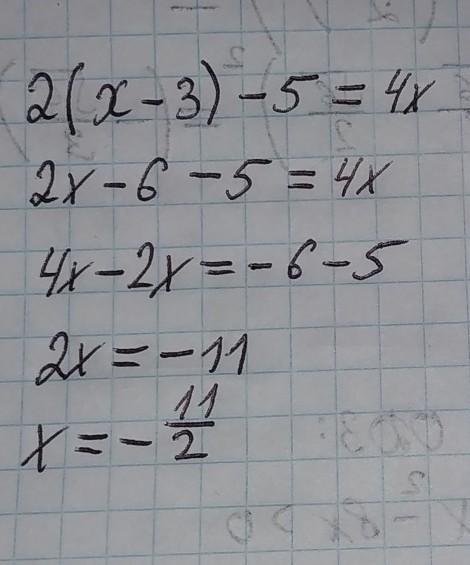 2(x - 3) - 5 = 4x
2x - 6 - 5 = 4x
4x - 2x = - 6 - 5
2x = - 11
x = - 11/2